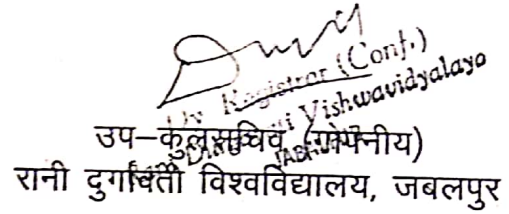 Dy. Registrar (Conf.)
Rani Durgavati Vishwavidyalaya
JABALPUR
उप–कुलसचिव (गोपनीय)
रानी दुर्गावती विश्वविद्यालय, जबलपुर